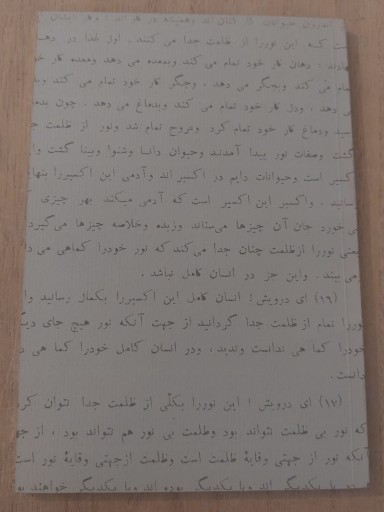 اندرون حیوانات
است که این نور را از ظلمت جدا می کنند. اول غذا در
نهادند، دهان کار خود تمام می کند و بمعده می دهد و معده کار خو
تمام می کند و بجگر می دهد، و جگر کار خود تمام می کند و بد
می دهد، و دل کار خود تمام می کند و بدماغ می دهد. چون بدماغ
رسید و دماغ کار خود تمام کرد و عروج تمام شد و نور از ظلمت ج
گشت و صفات نور پیدا آمدند و حیوان دانا و شنوا و بینا گشت وا
اکسیر است و حیوانات دایم در اکسیراند و آدمی این اکسیر را بنها
رسانید، و اکسیر این اکسیر است که آدمی میکند بهر چیزی
می خورد جان آن چیزها می‌ستاند و زبده و خلاصهٔ چیزها می‌گیرد
یعنی نور را از ظلمت چنان جدا می‌کند که نور خود را کماهی می دا
و می بیند. و این جز در انسان کامل نباشد.
(۱۶) ای درویش! انسان کامل این اکسیر را بکمال رسانید و ا
نور را تمام از ظلمت جدا گردانید از جهت آنکه نور هیچ جای دیگ
خود را کما هی ندانست و ندید، و در انسان کامل خود را کما هی د
دانست.
(۱۷) ای درویش! این نور را بکلّی از ظلمت جدا نتوان کرد
که نور بی ظلمت نتواند بود و ظلمت بی نور هم نتواند بود، از جه
آنکه نور از جهتی وقایهٔ ظلمت است و ظلمت از جهتی وقایهٔ نور است
با یکدیگراند و با یکدیگر بوده اند و با یکدیگر خواهند بو